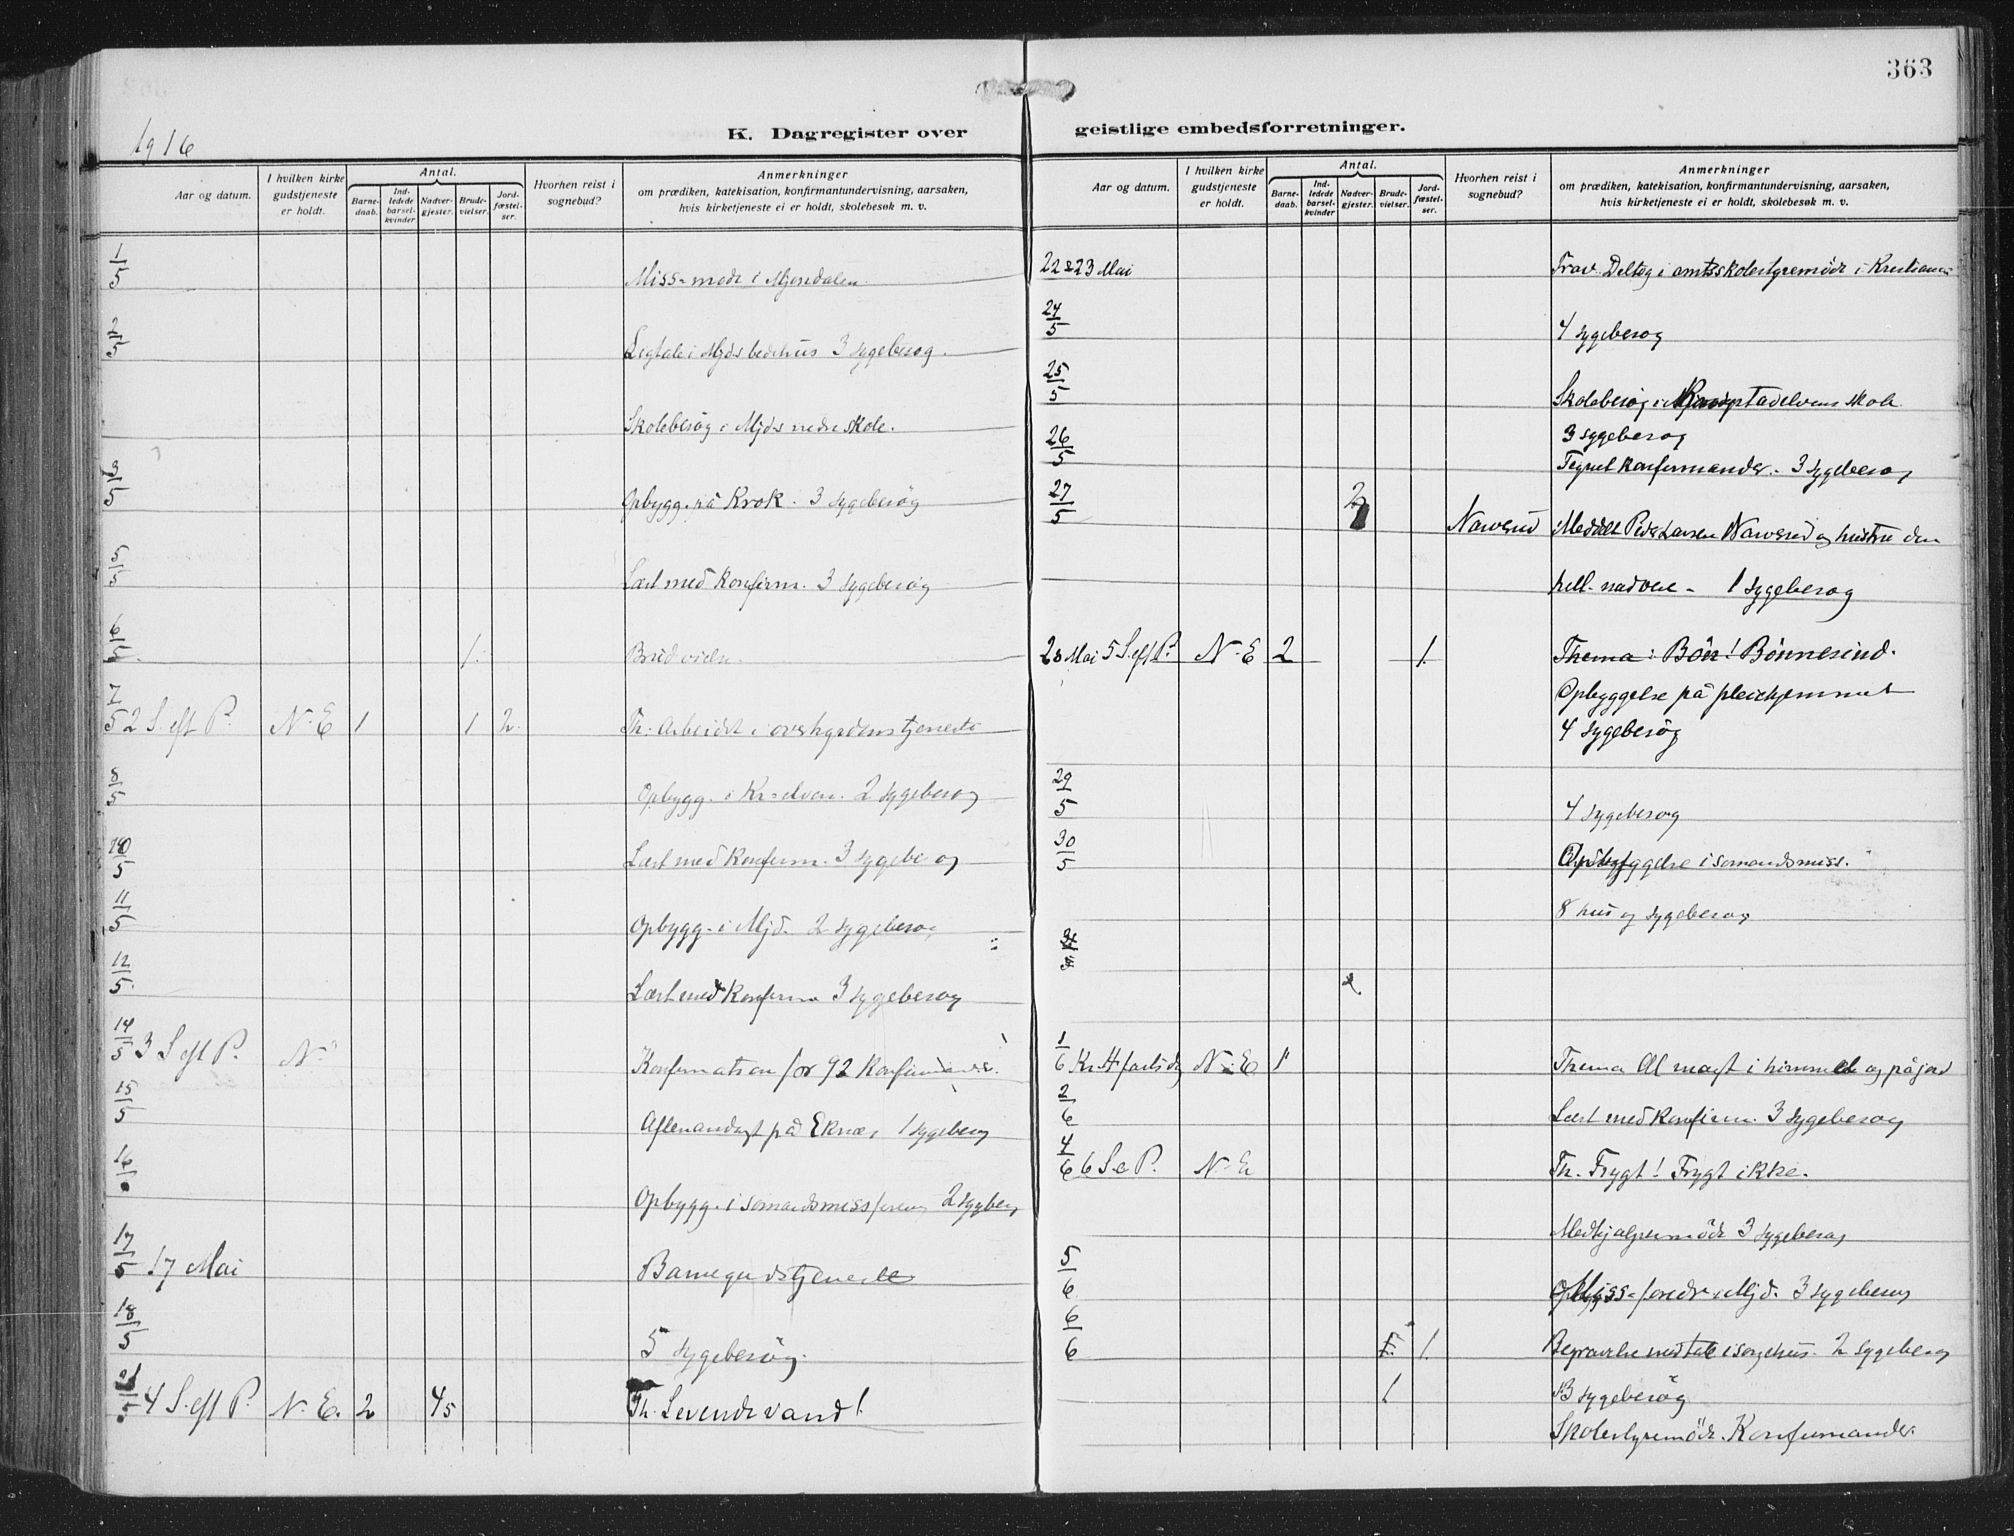 363
1916
K. Dagregister over geistlige embedsforretninger.
Aar og datum.
I hvilken kirke gudstjeneste er holdt.
Antal.
Barnedaab.
Indledede barselkvinder
Nadvergjester.
Brudevielser.
Jordfæstelser.
Hvorhen reist i sognebud?
Anmerkninger
om prædiken, katekisation, konfirmantundervisning, aarsaken,
hvis kirketjeneste ei er holdt, skolebesøk m. v.
1/5 Miss-møde i Mjøndalen.
2/5 Ligtale i Mjds bedehus 3 sygebesøg.
Skolebesøg i Mjds nedre skole.
3/5 Opbygg. på Krok. 3 sygebesøg
5/5 Læst med konfirm. 3 sygebesøg
6/5 1. Brudvielse.
7/5 2 S. eft P. N. E 1 1 2. Th. Arbeidet i overhyrdens tjeneste
8/5 Opbygg. i Kr-elven. 2 sygebesøg
10/5 Læst med konfirm. 3 sygebesøg
11/5 Opbygg. i Mjd. 2 sygebesøg
12/5 Læst med konfirm 3 sygebesøg
14/5 3 S. eft P. N. Konfirmation for 92 konfirmander.
15/5 Aftenandagt på Eknæs 1 sygebesøg
16/5 Opbygg. i sømandsmissforen 2 sygebes
17/5 17 Mai Barnegudstjeneste
18/5 5 sygebesøg.
21/5 4 S. eft P. N. E. 2 45 Th. Levende vand!
Aar og datum.
I hvilken kirke gudstjeneste er holdt.
Antal.
Barnedaab.
Indledede barselkvinder
Nadvergjester.
Brudevielser.
Jordfæstelser.
Hvorhen reist i sognebud?
Anmerkninger
om prædiken, katekisation, konfirmantundervisning, aarsaken,
hvis kirketjeneste ei er holdt, skolebesøk m. v.
22 & 23 Mai Frav. Deltog i amtsskolestyremöde i Kristiania
24/5 4 sygebesøg
25/5 Skolebesøg i Krogstadelvens skole
3 sygebesøg
26/5 Tegnet konfirmander. 3 sygebesøg
27/5 2 Narverud Meddelt Peder Larsen Narverud og hustru den
hell. nadvere - 1 sygebesøg
28 Mai 5 S. eft P. N. E 2 1. Thema: Bön! Bönnesind.
Opbyggelse på pleiehjemmet
4 sygebesøg
29/5 4 sygebesøg
30/5 Opbyggelse i sømandsmiss.
8 hus og sygebesøg
31/5
2.
1/6 Kr. H fartsdg N. E 1 Thema Al magt i himmel og på jord
2/6 Læst med konfirm. 3 sygebesøg
4/6 6 S. e P. N. E Th. Frygt! Frygt ikke.
Medhjælpermöde 3 sygebesøg
5/6 Miss-foredr i Mjd. 3 sygebesøg
6/6 1. Begravelse med tale i sørgehus. 2 sygebesøg
1 3 sygebesøg
Skolestyremöde. Konfirmander.